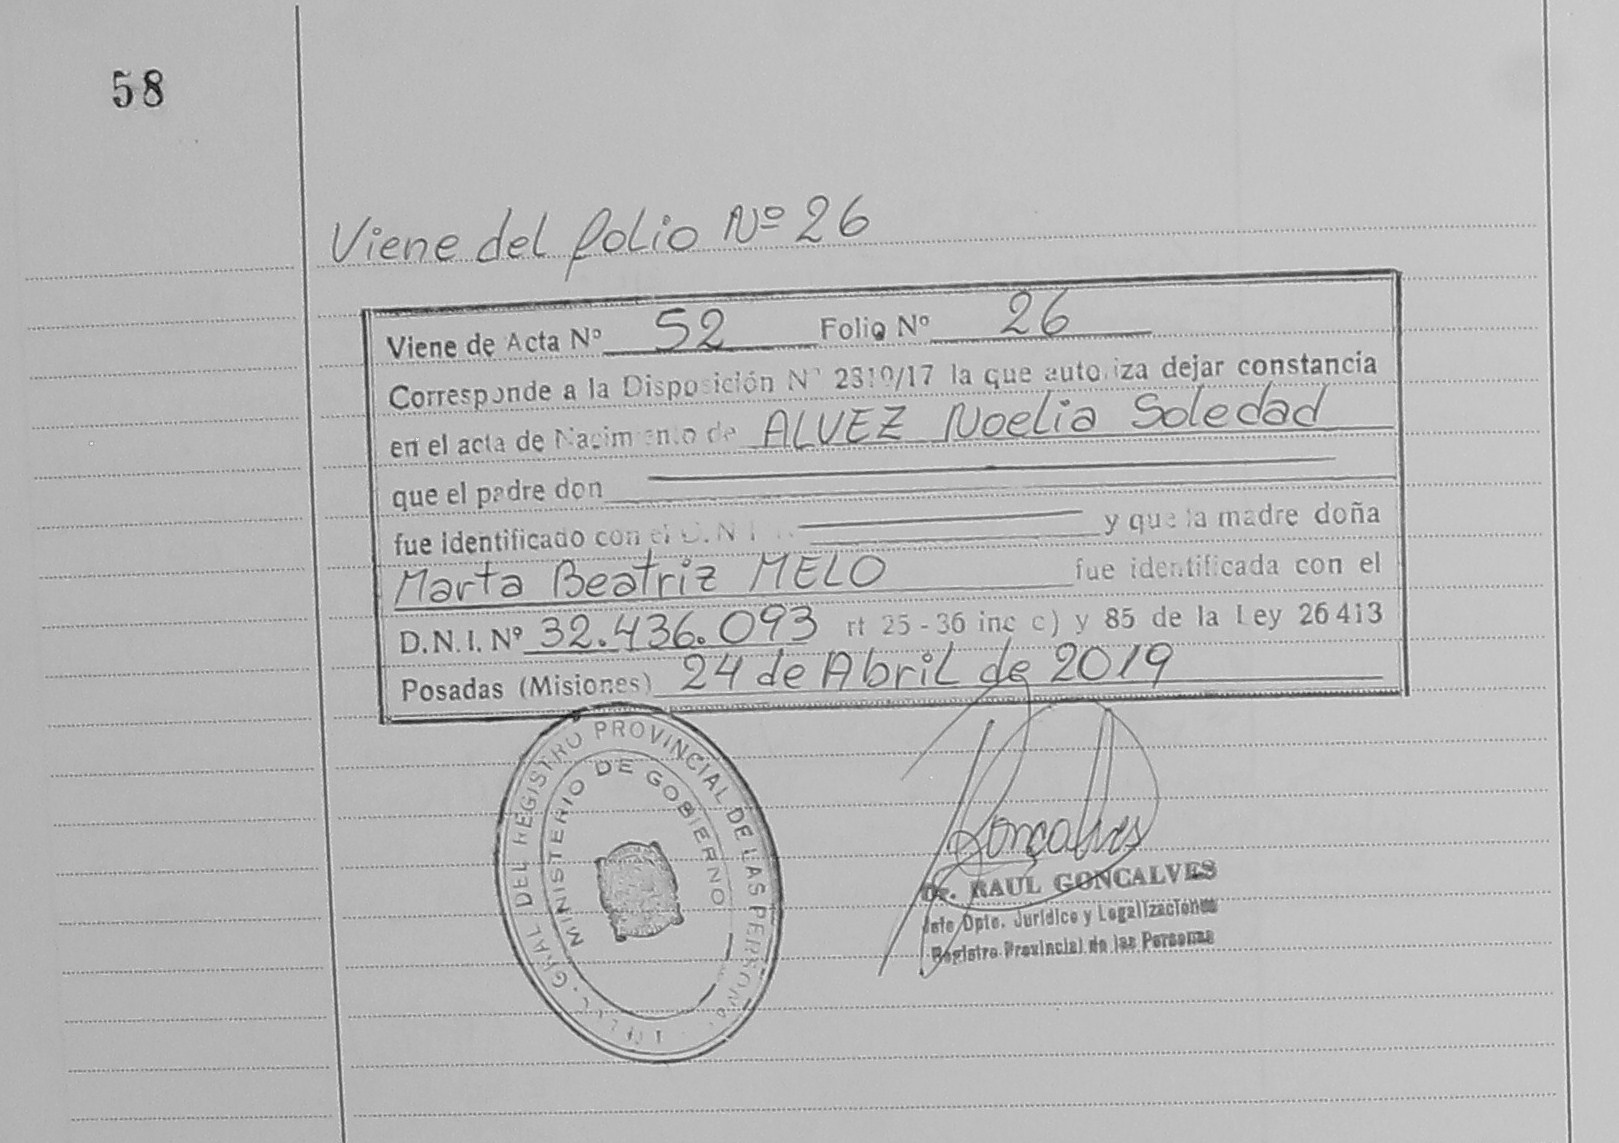 58
Viene del folio Nº 26
Viene de Acta Nº 52 Folio Nº 26
Corresponde a la Disposición Nº 2310/17 la que autoriza dejar constancia
en el acta de Nacimiento de ALVEZ Noelia Soledad
que el padre don
fue identificado con el D.N.I. y que la madre doña
Marta Beatriz MELO fue identificada con el
D.N.I. Nº 32.436.093 rt 25-36 inc c) y 85 de la Ley 26413
Posadas (Misiones) 24 de Abril de 2019
GRAL DEL REGISTRO PROVINCIAL DE LAS PERSONAS
MINISTERIO DE GOBIERNO
Goncalves
Dr. RAUL GONCALVES
Jefe Dpto. Jurídico y Legalizaciones
Registro Provincial de las Personas